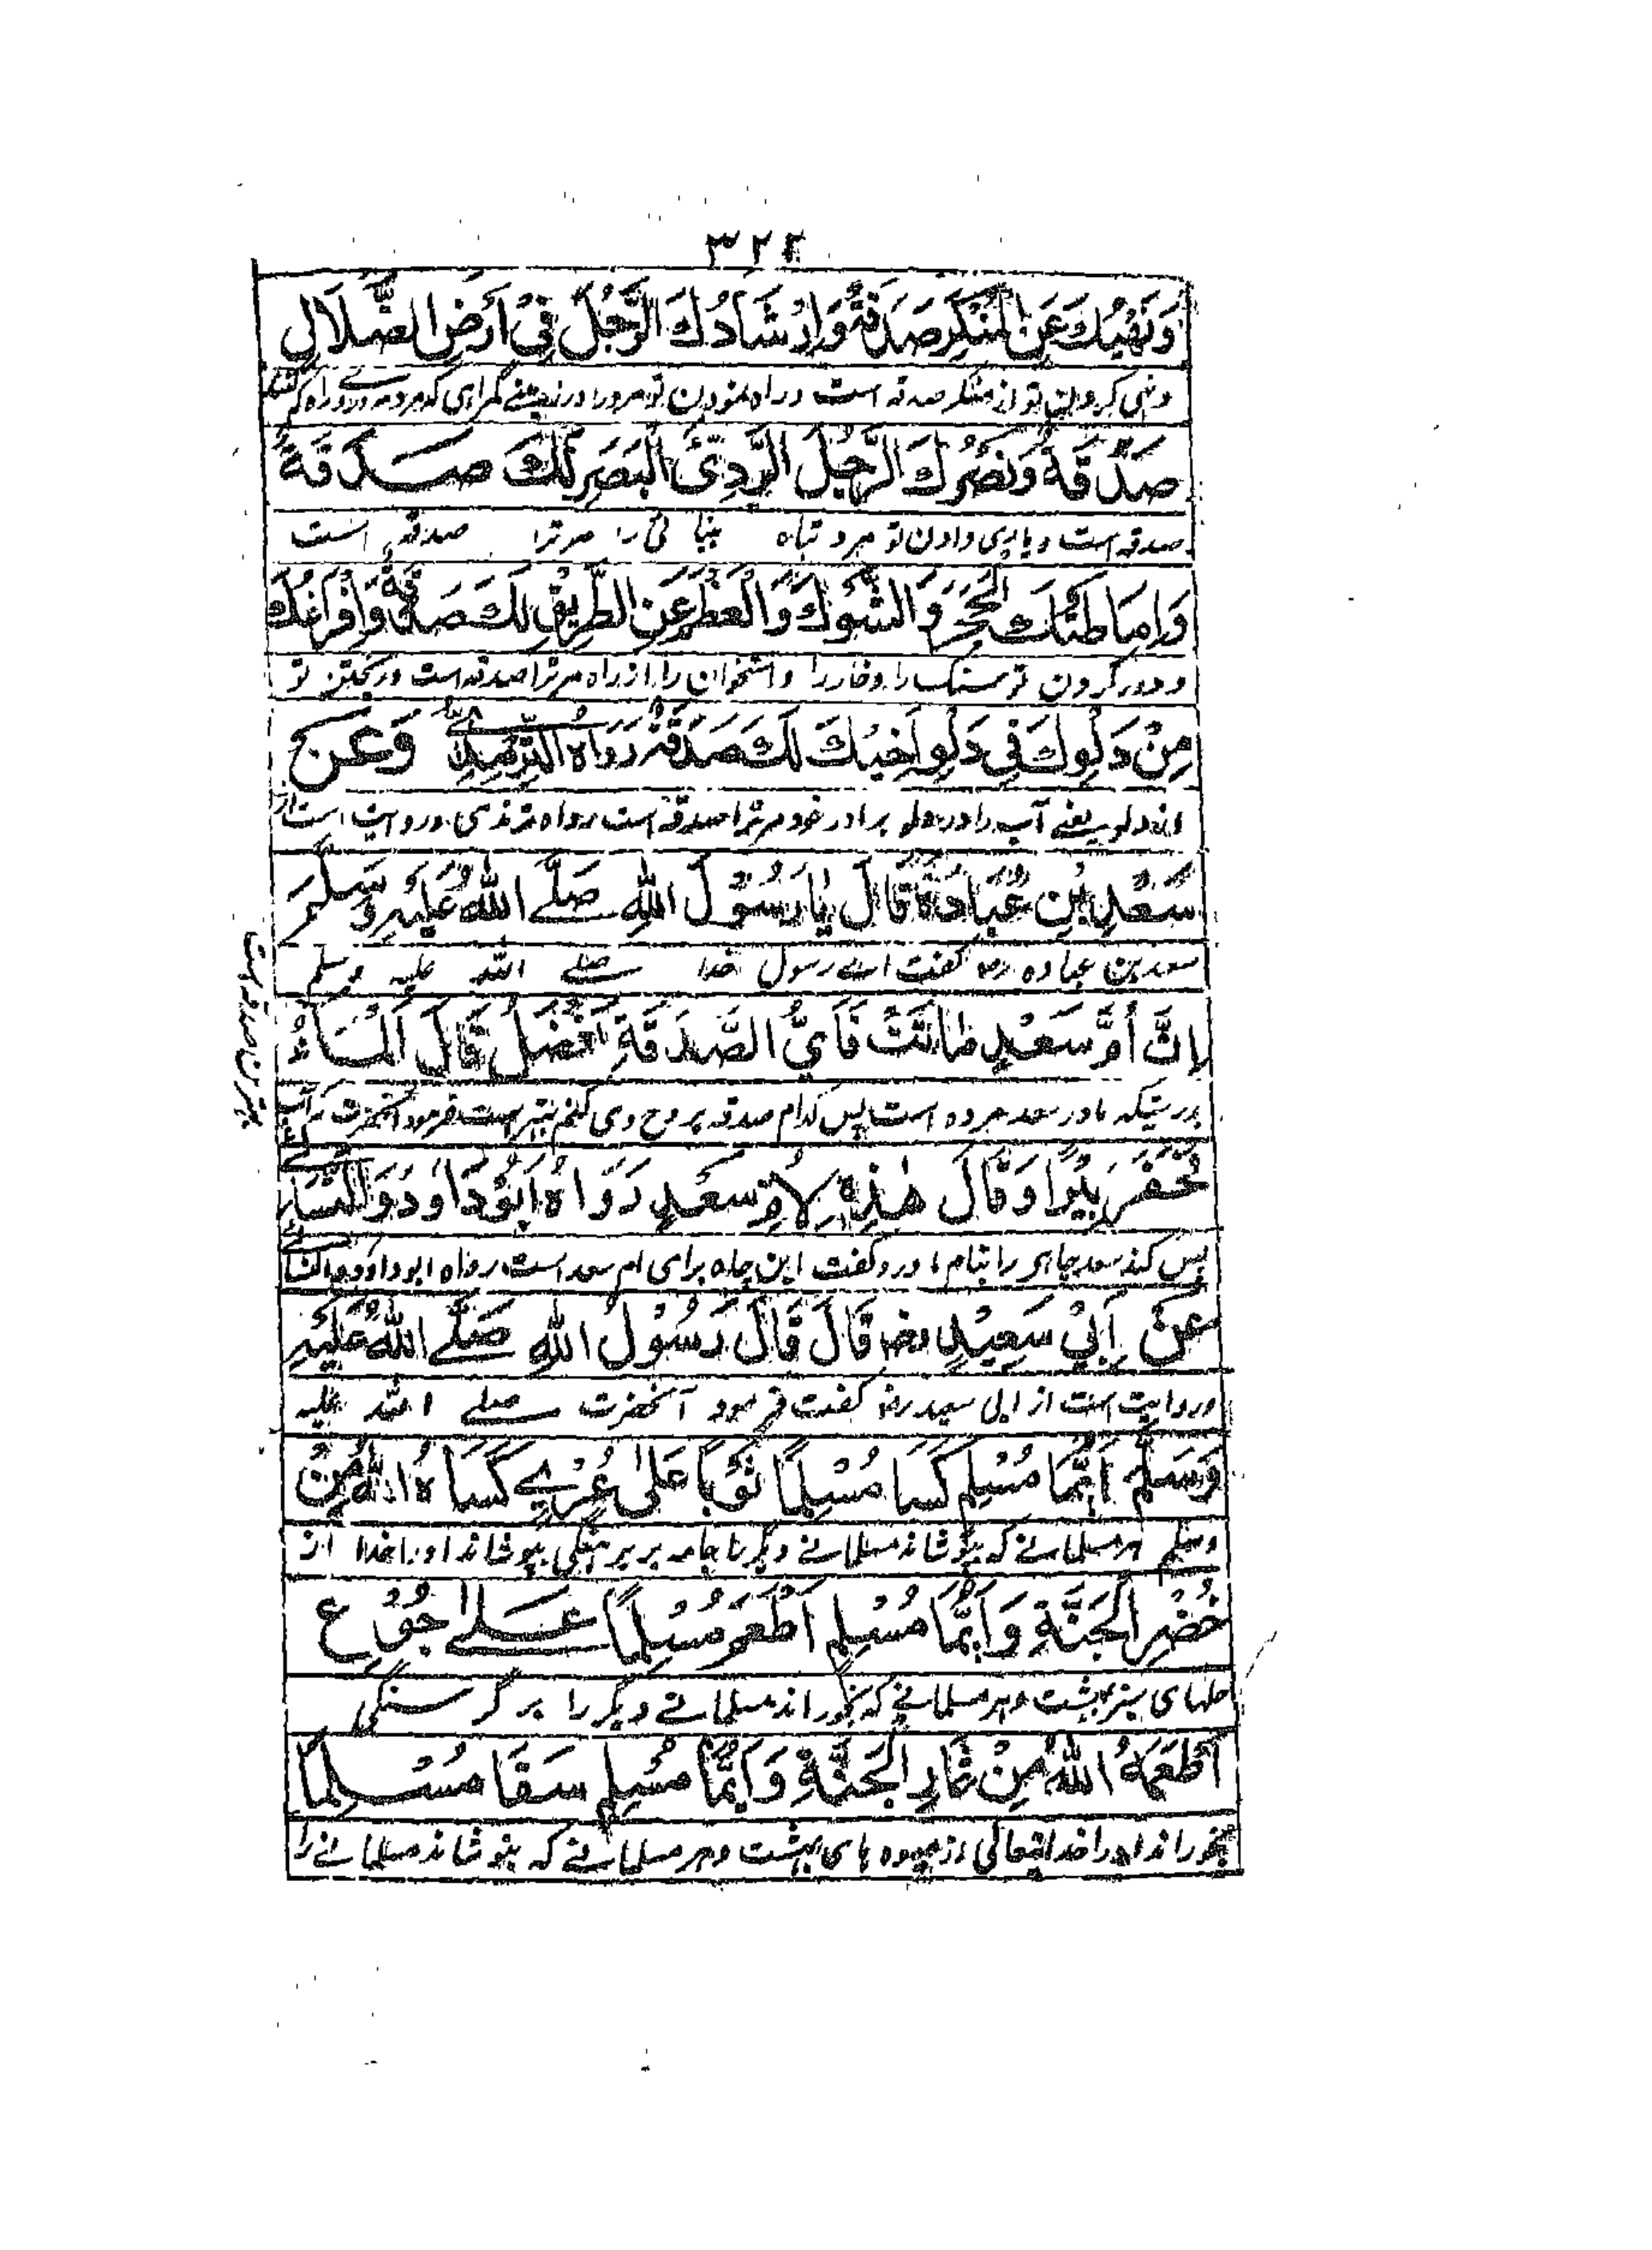 ٣٢٢
وَنَهْيُكَ عَنِ الْمُنْكَرِ صَدَقَةٌ وَاِرْشَادُكَ الرَّجُلَ فِيْ اَرْضِ الضَّلَالِ
ونهی کردن تو از منکر صدقه است و راه نمودن تو مرد را در زمینے گمراہی که مردم در و راه گم کنند
صَدَقَةٌ وَنَصْرُكَ الرَّجُلَ الرَّدِيَّ الْبَصَرِ لَكَ صَدَقَةٌ
صدقه است و یاری دادن تو مرد تباه بینائی را مر ترا صدقه است
وَاِمَاطَتُكَ الْحَجَرَ وَالشَّوْكَ وَالْعَظْمَ عَنِ الطَّرِيْقِ لَكَ صَدَقَةٌ وَاِفْرَاغُكَ
و دور کردن تو سنگ را و خار را و استخوان را از راه مر ترا صدقه است و ریختن تو
مِنْ دَلْوِكَ فِي دَلْوِ اَخِيْكَ لَكَ صَدَقَةٌ رَوَاهُ التِّرْمِذِيُّ وَعَنْ
از دلو یعنے آب را در دلو برادر خود مر ترا صدقه است رواه ترمذی و روایت است از
سَعْدِ بْنِ عُبَادَةَ قَالَ يَا رَسُوْلَ اللهِ صَلَّے اللهُ عَلَيْهِ وَسَلَّمَ
سعد بن عباده رض گفت اے رسول خدا صلے الله علیه وسلم
اِنَّ اُمَّ سَعْدٍ مَاتَتْ فَاَيُّ الصَّدَقَةِ اَفْضَلُ قَالَ الْمَاءُ
بدرستیکه مادر سعد مرده است پس کدام صدقه بروح وی کنم بهتر است فرمود آنحضرت که آب
بهترین صدقه است
فَحَفَرَ بِيْرًا وَقَالَ هٰذِهٖ لِاُمِّ سَعْدٍ رَوَاهُ اَبُوْدَاوٗدَ وَالنَّسَائِے
پس کند سعد چاہی را بنام مادر و گفت این چاه برای ام سعد است رواه ابوداؤد والنسائے
عَنْ اَبِيْ سَعِيْدٍ رض قَالَ قَالَ رَسُوْلُ اللهِ صَلَّے اللهُ عَلَيْهِ
و روایت است از ابی سعید رض گفت فرمود آنحضرت صلے الله علیه
وَسَلَّمَ اَيُّمَا مُسْلِمٍ كَسَا مُسْلِمًا ثَوْبًا عَلٰى عُرْيٍ كَسَاهُ اللهُ مِنْ
وسلم هر مسلمانے که بپوشاند مسلمانے دیگر را جامه بر برهنگی بپوشاند او را خدا از
خُضْرِ الْجَنَّةِ وَاَيُّمَا مُسْلِمٍ اَطْعَمَ مُسْلِمًا عَلٰے جُوْعٍ
حلهای سبز بهشت و هر مسلمانے که بخوراند مسلمانے دیگر را بر گرسنگی
اَطْعَمَهُ اللهُ مِنْ ثِمَارِ الْجَنَّةِ وَاَيُّمَا مُسْلِمٍ سَقَا مُسْلِمًا
بخوراند او را خدایتعالی از میوه های بهشت و هر مسلمانے که بنوشاند مسلمانے را